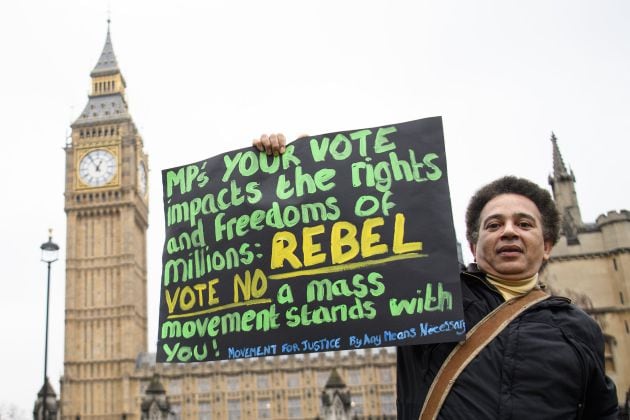 MP's YOUR VOTE
impacts the rights
and freedoms of
millions: REBEL
VOTE NO a mass
movement stands with
you!
MOVEMENT FOR JUSTICE By Any Means Necessary